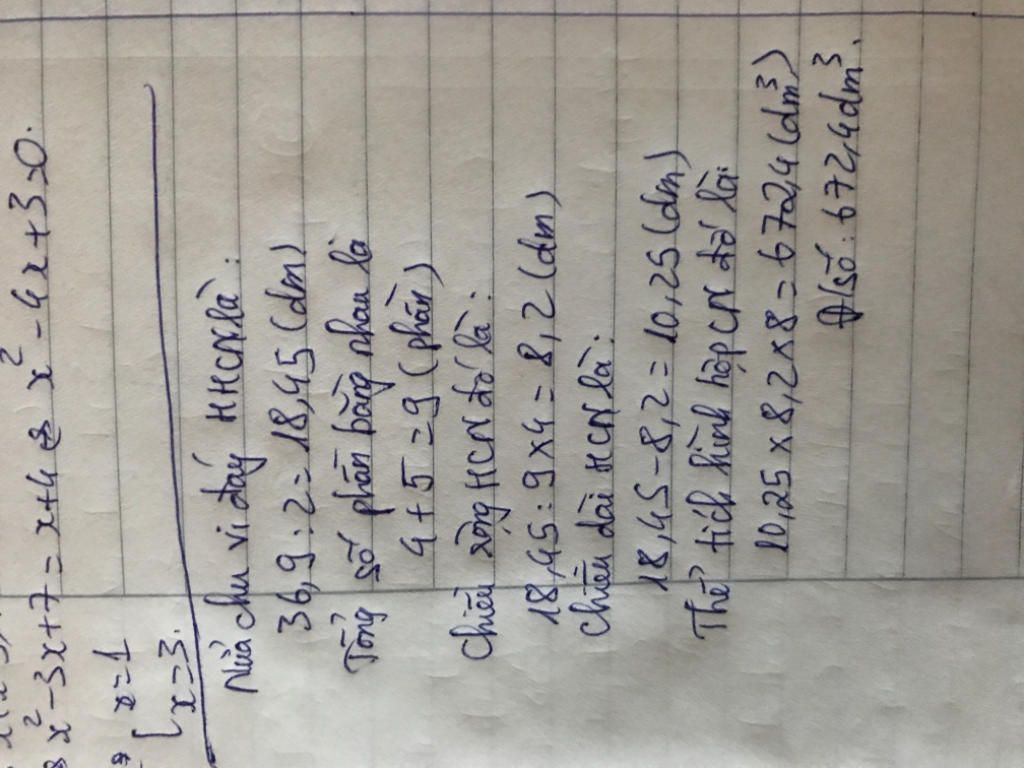 x² - 3x + 7 = x + 4 ⇔ x² - 4x + 3 = 0.
[ x = 1
x = 3.
Nửa chu vi đáy HHCN là:
36,9 : 2 = 18,45 (dm)
Tổng số phần bằng nhau là
4 + 5 = 9 (phần)
Chiều rộng HCN đó là:
18,45 : 9 x 4 = 8,2 (dm)
Chiều dài HCN là:
18,45 - 8,2 = 10,25 (dm)
Thể tích hình hộp CN đó là:
10,25 x 8,2 x 8 = 672,4 (dm³)
Đ/số: 672,4 dm³.